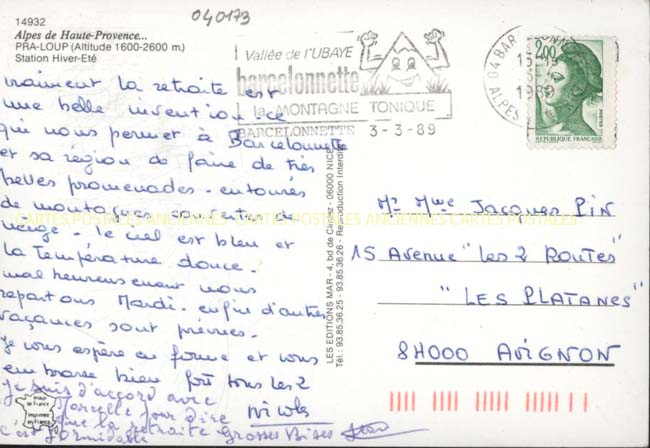 040173
14932
Alpes de Haute-Provence...
PRA-LOUP (Altitude 1600-2600 m.)
Station Hiver-Eté
Vallée de l'UBAYE
barcelonnette
la MONTAGNE TONIQUE
BARCELONNETTE 3-3-89
04 BAR
ALPES
15-
3-
1989
2,00
REPUBLIQUE FRANÇAISE
vraiment la retraite est
une belle invention. ce
qui nous permet à Barcelonnette
et sa région de faire de très
belles promenades - entourés
de montagnes couvertes de
neige - le ciel est bleu et
la température douce -
malheureusement nous
repartons Mardi - enfin d'autres
vacances sont prévues -
Je vous espère en forme et vous
embrasse bien fort tous les 2
Nicole
Je suis d'accord avec
Marcelle pour dire
que la retraite
c'est formidable
Grosses Bises
CARTES POSTALES ANCIENNES CARTES POSTALES ANCIENNES CARTES POSTALES
LES EDITIONS MAR - 4, bd de Cimiez - 06000 NICE
Tél.: 93.85.36.25 - 93.85.36.26 - Reproduction interdite
Mr Mme Jacques PIN
15 Avenue "les 2 Routes"
"LES PLATANES"
84000 AVIGNON
imprimée
en France